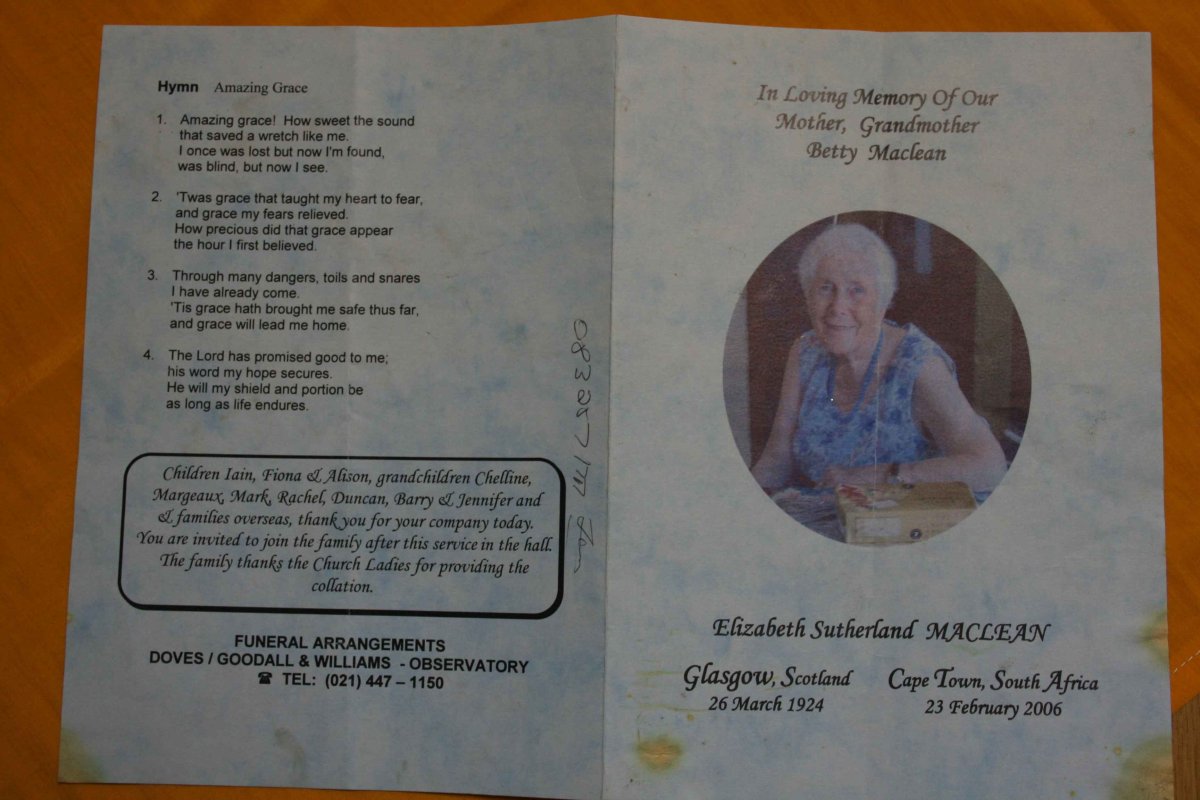 Hymn Amazing Grace
1. Amazing grace! How sweet the sound
that saved a wretch like me.
I once was lost but now I'm found,
was blind, but now I see.
2. 'Twas grace that taught my heart to fear,
and grace my fears relieved.
How precious did that grace appear
the hour I first believed.
3. Through many dangers, toils and snares
I have already come.
'Tis grace hath brought me safe thus far,
and grace will lead me home.
4. The Lord has promised good to me;
his word my hope secures.
He will my shield and portion be
as long as life endures.
Children Iain, Fiona & Alison, grandchildren Chelline,
Margeaux, Mark, Rachel, Duncan, Barry & Jennifer and
& families overseas, thank you for your company today.
You are invited to join the family after this service in the hall.
The family thanks the Church Ladies for providing the
collation.
FUNERAL ARRANGEMENTS
DOVES / GOODALL & WILLIAMS - OBSERVATORY
☎ TEL: (021) 447 – 1150
In Loving Memory Of Our
Mother, Grandmother
Betty Maclean
Elizabeth Sutherland MACLEAN
Glasgow, Scotland
26 March 1924
Cape Town, South Africa
23 February 2006